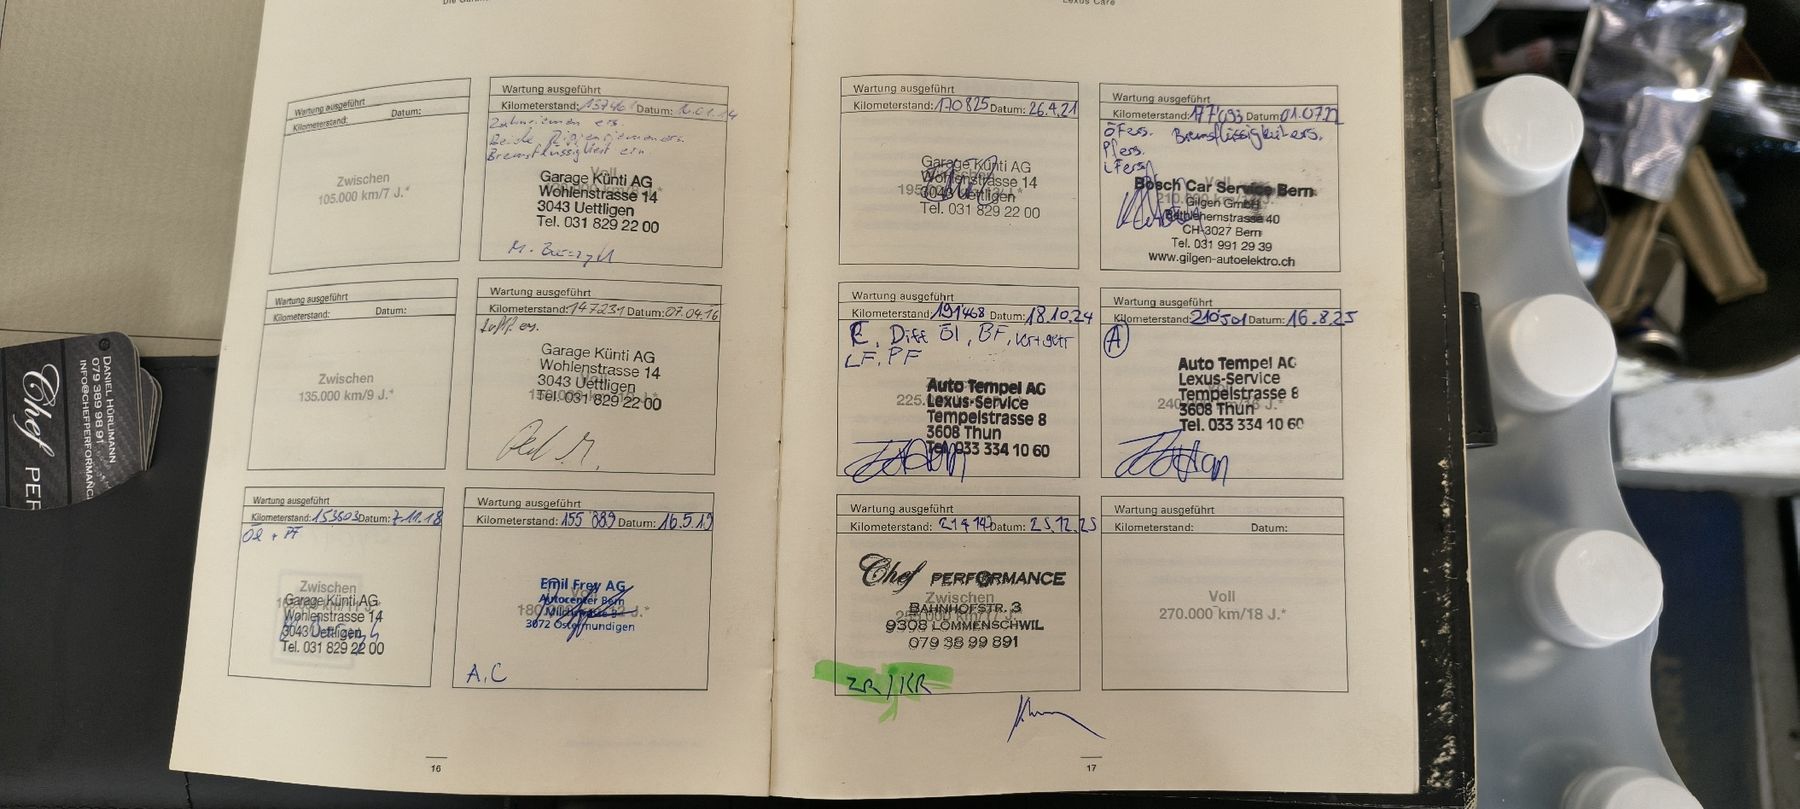 Lexus Care
Wartung ausgeführt
Kilometerstand: Datum:
Zwischen
105.000 km/7 J.*
Wartung ausgeführt
Kilometerstand: Datum:
Zahnriemen ers.
Bremsflüssigkeit ern.
Voll
Garage Künti AG
Wohlenstrasse 14
3043 Uettligen
Tel. 031 829 22 00
Wartung ausgeführt
Kilometerstand: Datum:
Zwischen
135.000 km/9 J.*
Wartung ausgeführt
Kilometerstand: 147231 Datum: 07.04.16
Garage Künti AG
Wohlenstrasse 14
3043 Uettligen
Tel. 031 829 22 00
Wartung ausgeführt
Kilometerstand: 153803 Datum: 7.11.18
Öl + PF
Zwischen
Garage Künti AG
Wohlenstrasse 14
3043 Uettligen
Tel. 031 829 22 00
Wartung ausgeführt
Kilometerstand: 155 889 Datum: 16.5.19
Emil Frey AG
Autocenter Bern
3072 Ostermundigen
A.C
16
Wartung ausgeführt
Kilometerstand: 170825 Datum: 26.4.21
Garage Künti AG
Wohlenstrasse 14
3043 Uettligen
Tel. 031 829 22 00
Wartung ausgeführt
Kilometerstand: 177'093 Datum: 01.07.22
ÖFers. Bremsflüssigkeit ers.
PFers.
iFers.
Voll
Bosch Car Service Bern
Gilgen GmbH
Bethlehemstrasse 40
CH-3027 Bern
Tel. 031 991 29 39
www.gilgen-autoelektro.ch
Wartung ausgeführt
Kilometerstand: 191'468 Datum: 18.10.24
Diff Öl, BF,
LF, PF
Auto Tempel AG
Lexus-Service
Tempelstrasse 8
3608 Thun
Tel. 033 334 10 60
Wartung ausgeführt
Kilometerstand: 210'501 Datum: 16.8.25
A
Auto Tempel AG
Lexus-Service
Tempelstrasse 8
3608 Thun
Tel. 033 334 10 60
Wartung ausgeführt
Kilometerstand: Datum: 25.12.25
Chef PERFORMANCE
Zwischen
BAHNHOFSTR. 3
9308 LÖMMENSCHWIL
079 38 99 891
ZR/KR
Wartung ausgeführt
Kilometerstand: Datum:
Voll
270.000 km/18 J.*
17
DANIEL HÜRLIMANN
079 389 98 91
Chef PER